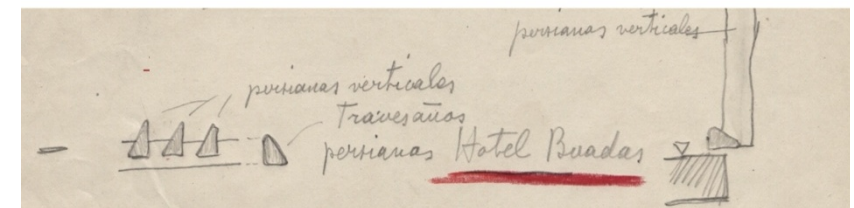 persianas verticales
persianas verticales
Travesaños
persianas Hotel Buadas